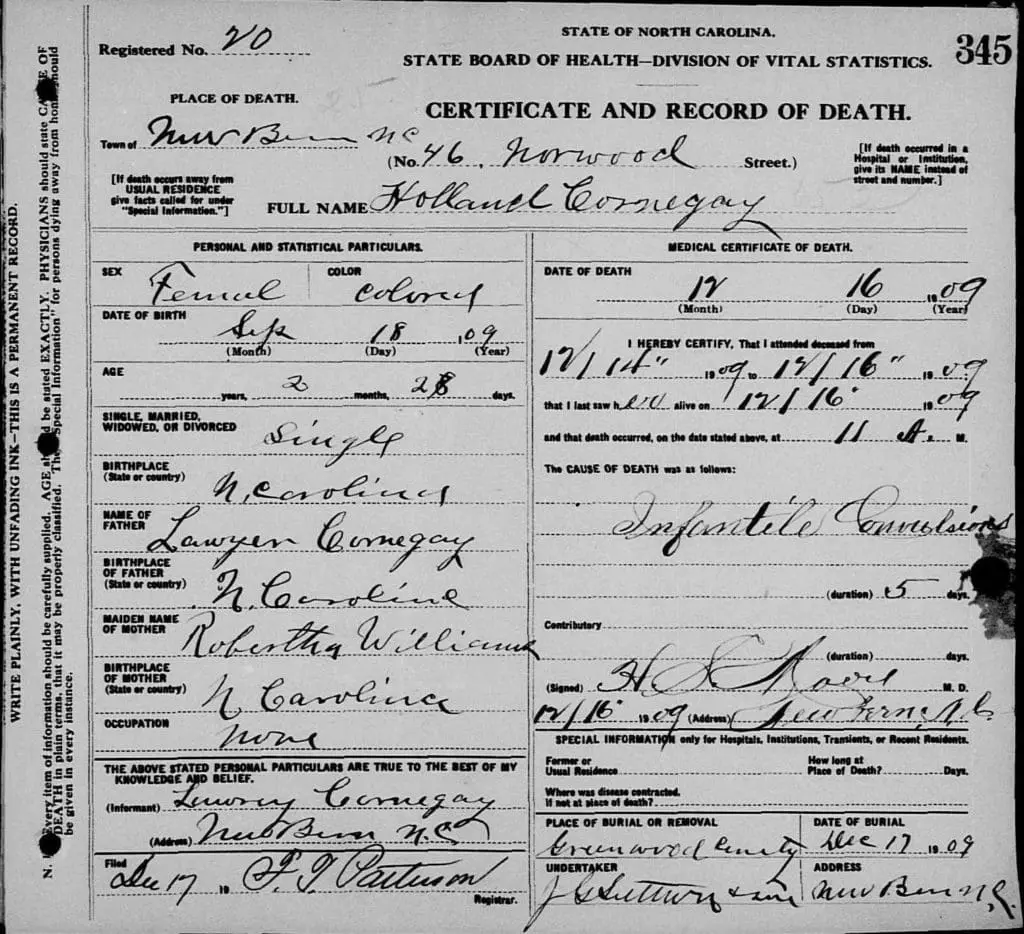 Registered No. 20
STATE OF NORTH CAROLINA.
345
STATE BOARD OF HEALTH—DIVISION OF VITAL STATISTICS.
PLACE OF DEATH.
CERTIFICATE AND RECORD OF DEATH.
Town of New Bern NC
(No. 46, Norwood Street.)
[If death occurred in a Hospital or Institution, give its NAME instead of street and number.]
[If death occurs away from USUAL RESIDENCE give facts called for under "Special Information."]
FULL NAME Holland Cornegay
PERSONAL AND STATISTICAL PARTICULARS.
SEX Femal
COLOR colored
DATE OF BIRTH
Sep 18, 09
(Month) (Day) (Year)
AGE
years, 2 months, 28 days.
SINGLE, MARRIED, WIDOWED, OR DIVORCED Single
BIRTHPLACE (State or country) N. Carolina
NAME OF FATHER Lawyer Cornegay
BIRTHPLACE OF FATHER (State or country) N. Carolina
MAIDEN NAME OF MOTHER Robertha Williams
BIRTHPLACE OF MOTHER (State or country) N Carolina
OCCUPATION none
THE ABOVE STATED PERSONAL PARTICULARS ARE TRUE TO THE BEST OF MY KNOWLEDGE AND BELIEF.
(Informant) Cornegay
(Address) New Bern N.C
Filed Dec 17 19 F. T. Patterson
Registrar.
MEDICAL CERTIFICATE OF DEATH.
DATE OF DEATH
12 16 1909
(Month) (Day) (Year)
I HEREBY CERTIFY, That I attended deceased from
12/14" 1909 to 12/16" 1909
that I last saw h alive on 12/16" 1909
and that death occurred, on the date stated above, at 11 A. M.
The CAUSE OF DEATH was as follows:
Infantile Convulsions
(duration) 5 days.
Contributory
(duration) days.
(Signed) H S M.D.
12/16 1909 (Address) New Bern, N.C.
SPECIAL INFORMATION only for Hospitals, Institutions, Transients, or Recent Residents.
Former or Usual Residence
How long at Place of Death? Days.
Where was disease contracted. If not at place of death?
PLACE OF BURIAL OR REMOVAL Greenwood
DATE OF BURIAL Dec 17 1909
UNDERTAKER J G
ADDRESS New Bern N.C.
WRITE PLAINLY, WITH UNFADING INK—THIS IS A PERMANENT RECORD.
N. Every item of information should be carefully supplied. AGE be stated EXACTLY. PHYSICIANS should state OF
DEATH in plain terms, that it may be properly classified. The "Special Information" for persons dying away from home should
be given in every instance.